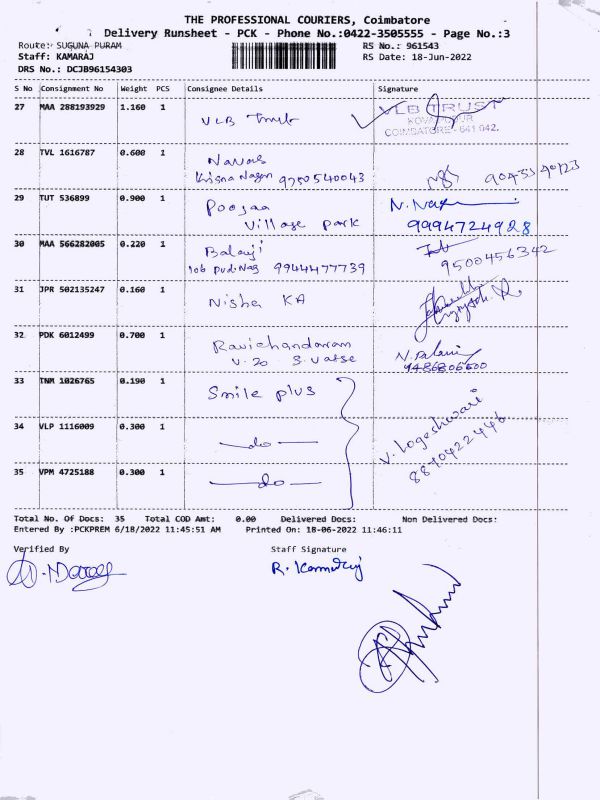 THE PROFESSIONAL COURIERS, Coimbatore
Delivery Runsheet - PCK - Phone No.:0422-3505555 - Page No.:3
Route:- SUGUNA PURAM RS No.: 961543
Staff: KAMARAJ RS Date: 18-Jun-2022
DRS No.: DCJB96154303
S No Consignment No Weight PCS Consignee Details Signature
27 MAA 288193929 1.160 1 VLB Trust VLB TRUST
KOVAIPUDUR
COIMBATORE - 641 042.
28 TVL 1616787 0.600 1
Nagar 9750540043
29 TUT 536899 0.900 1 Poojaa
Village park 9994724928
30 MAA 566282005 0.220 1 Balaji
9944477739 9500456342
31 JPR 502135247 0.160 1 Nisha KA
32 PDK 6012499 0.700 1 Ravichandaram
V. 20
N. Palani
9486806600
33 TNM 1026765 0.190 1 Smile plus
34 VLP 1116009 0.300 1 —do—
V. Logeshwari
8870422446
35 VPM 4725188 0.300 1 —do—
Total No. Of Docs: 35 Total COD Amt: 0.00 Delivered Docs: Non Delivered Docs:
Entered By :PCKPREM 6/18/2022 11:45:51 AM Printed On: 18-06-2022 11:46:11
Verified By Staff Signature
R. Kamaraj